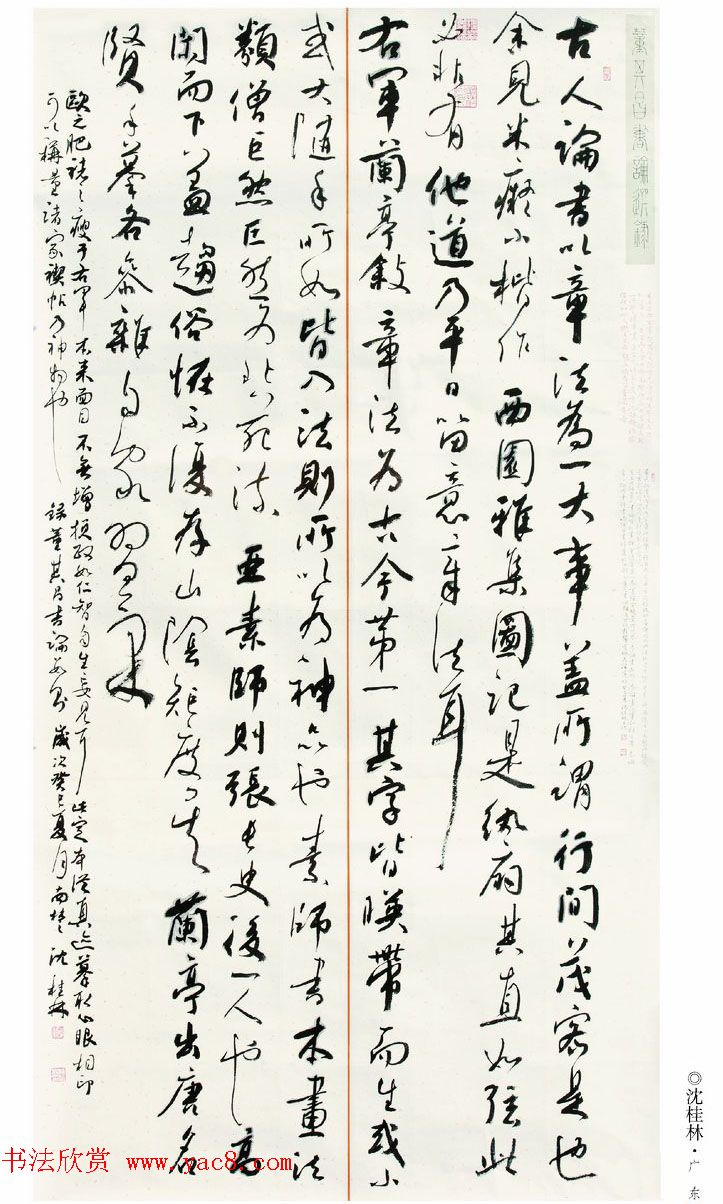 董其昌書論選錄
古人論書以章法為一大事蓋所謂行間茂密是也
余見米癡小楷作西園雅集圖記是紈扇其直如弦此
必非有他道乃平日留意章法耳
右軍蘭亭敘章法為古今第一其字皆暎帶而生或小
或大隨手所如皆入法則所以為神品也素師書本畫法
類僧巨然巨然為北苑流亞素師則張長史後一人也高
閑而下益趨俗怪不復存山陰矩度矣蘭亭出唐名
賢手摹各參雜自家習氣
歐之肥褚之瘦于右軍本來面目不無增損政如仁智自生妄見耳此定本從真迹摹取心眼相印
可以稱量諸家禊帖乃神物也 錄董其昌書論數則 歲次癸巳夏月南楚沈桂林
◎沈桂林·广东
书法欣赏 www.yac8.com